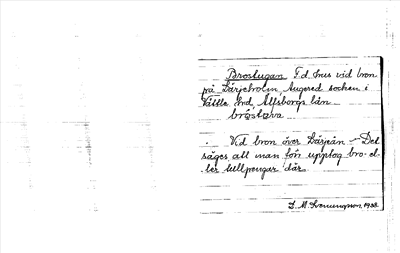 Brostugan F.d. hus vid bron
på Lärjeholm, Angered socken i
Vättle hd, Älfsborgs län
bróstuva
Vid bron över Lärjeån — Det
säges att man förr upptog bro- el-
ler tullpengar där.
S. M. 1938.